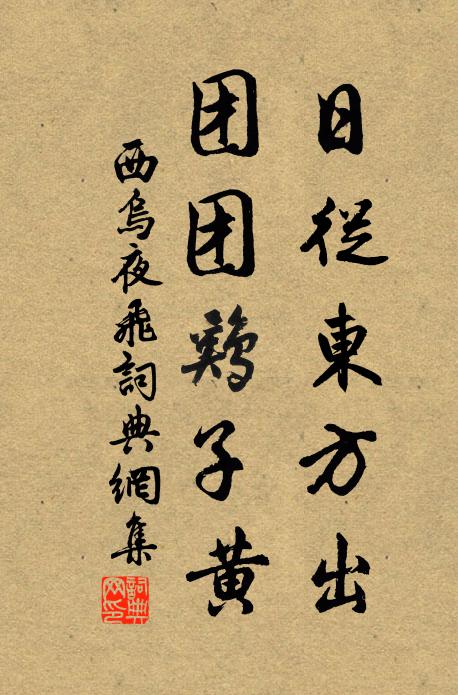 日從東方出
团团鷄子黄
西烏夜飛詞典網集
詞典网印